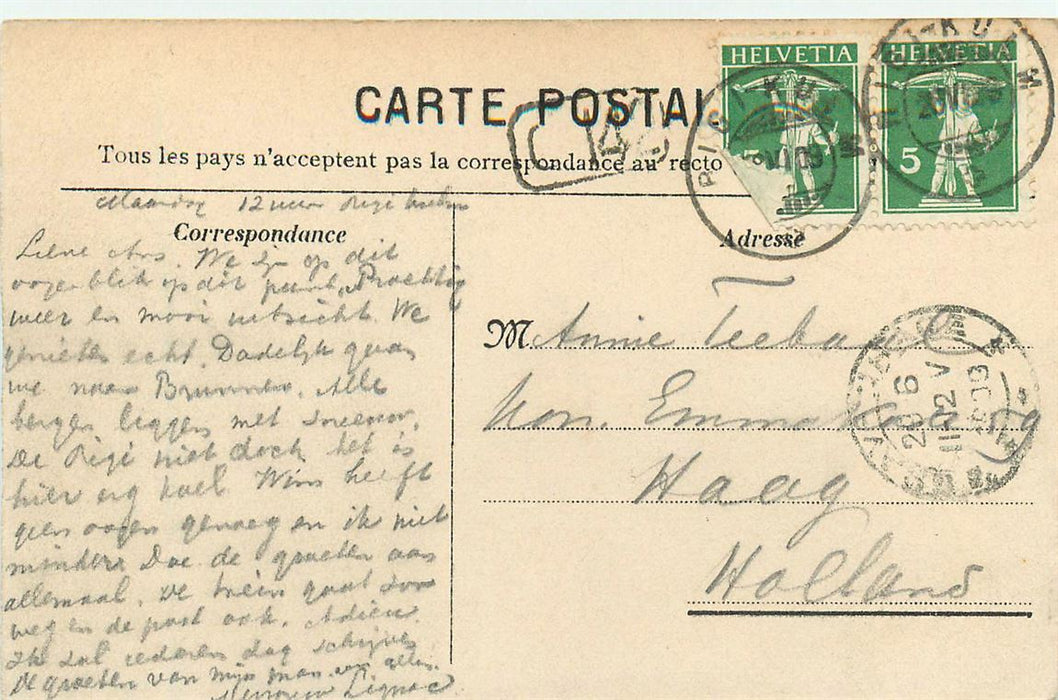 CARTE POSTAL
Tous les pays n'acceptent pas la correspondance au recto
HELVETIA
HELVETIA
5
5
RIGI-KULM
RIGI-KULM
Maandag 12 uur Rigi Kulm
Correspondance
Lieve Ans. We zijn op dit
oogenblik op dit punt. Prachtig
weer en mooi uitzicht. We
genieten echt. Dadelijk gaan
we naar Brunnen. Alle
bergen liggen met sneeuw.
De Rigi niet doch het is
hier erg koel. Wim heeft
geen oogen genoeg en ik niet
minder. Doe de groeten aan
allemaal. De trein gaat
weg en de post ook. Adieu.
Ik zal iederen dag schrijven
De groeten van mijn man
Adresse
M Annie
Kon. Emmakade
Haag
Holland